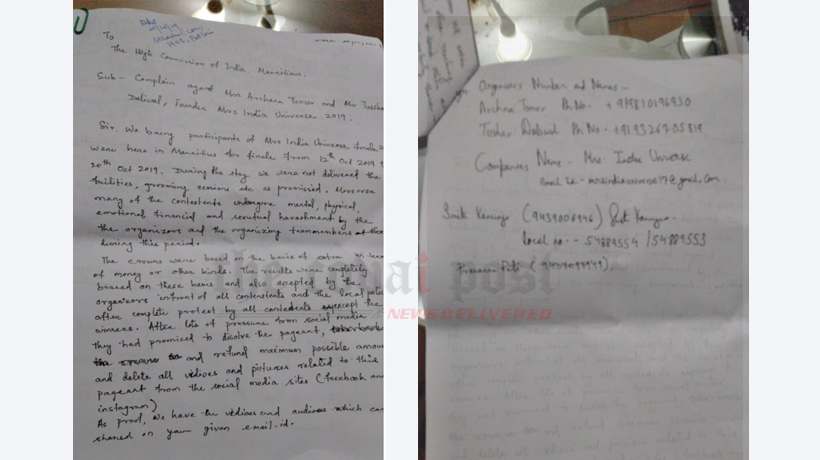 To
The High Commission of India, Mauritius.
Sub- Complain against Mrs Archana Tomer and Mr Tushar
Daliwal, Founder Mrs India Universe 2019.
Sir, We being participants of Mrs India Universe finale,
were here in Mauritius for finale from 12th Oct 2019
20th Oct 2019. During the stay we were not delivered the
facilities, grooming sessions etc as promised. Moreover
many of the contestents undergone mental, physical,
emotional financial and sexual harashment by the
the organizers and the organizing teammembers
during this period.
The crowns were based on the basis of extra
of money or other kinds. The results were completely
biased on these bases and also accepted by the
organizers infront of all contestents and the local police
after complete protest by all contestents except the
winners. After lots of pressure from social media
they had promised to disolve the pageant,
and refund maximum possible amoun
and delete all vedioes and pictures related to this
pageant from the social media sites (facebook an
instagram)
As proof, we have the vedioes and audioes which can
shared on your given email-id.
Organisers Numbers and Names -
Archna Tomer Ph No. +919810196930
Tushar Daliwal Ph No -
Companies Name - Mrs India Universe
Email Id -
(9439006946)
Local no - 54889554 / 54889553
the mumbai post
NEWS DELIVERED